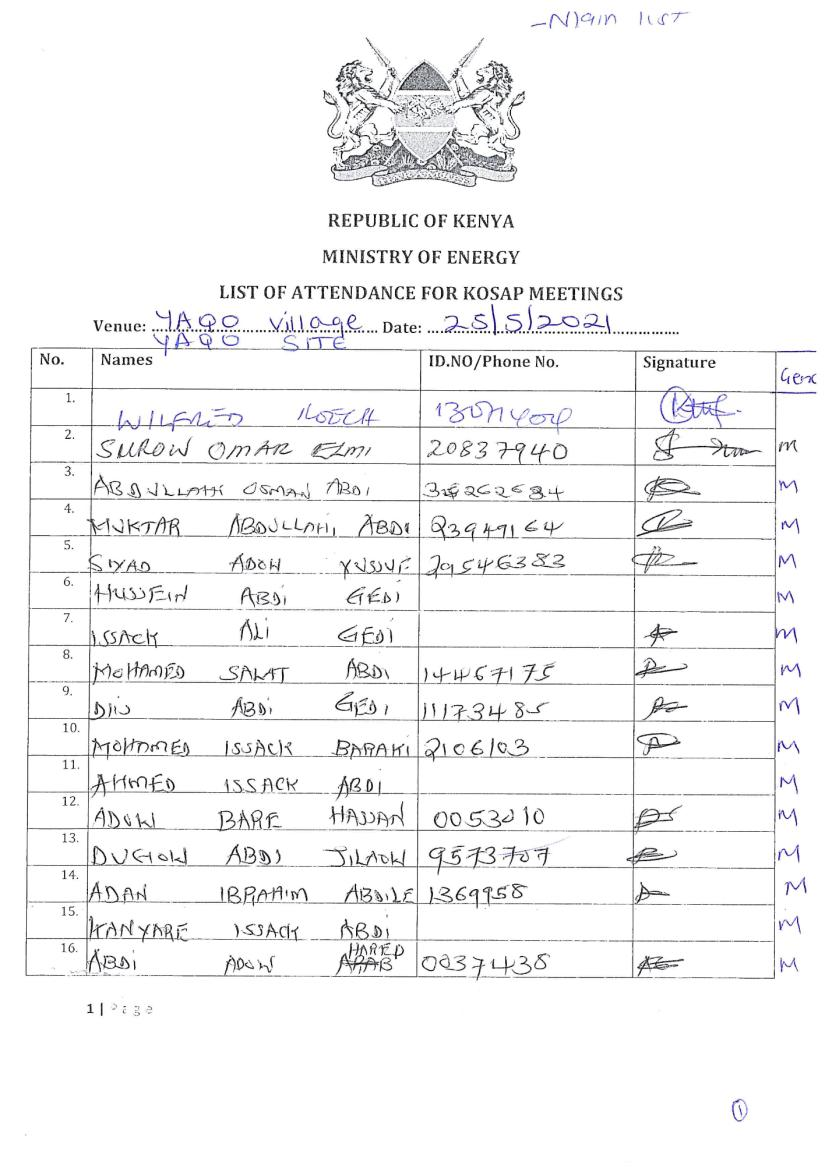 Main list
REPUBLIC OF KENYA
MINISTRY OF ENERGY
LIST OF ATTENDANCE FOR KOSAP MEETINGS
Venue: YAQO Village Date: 25/5/2021
YAQO SITE
No. Names ID.NO/Phone No. Signature
1. WILFRED
2. SUROW OMAR ELMI 20837940 M
3. ABDULLAHI OSMAN ABDI M
4. MUKTAR ABDULLAHI ABDI 23949164 M
5. SIYAD ADOW YUSSUF 29546383 M
6. HUSSEIN ABDI GEDI M
7. ISSACK ALI GEDI M
8. MOHAMED SALAT ABDI 14467175 M
9. DIIS ABDI GEDI 11173485 M
10. MOHAMED ISSACK BARAKI 2106103 M
11. AHMED ISSACK ABDI M
12. ADOW BARE HASSAN M
13. ABDI JILAOW 9573707 M
14. ADAN IBRAHIM ABDILE 1369958 M
15. KANYARE ISSACK ABDI M
16. ABDI ADOW HARED 0037438 M
1 | Page
1